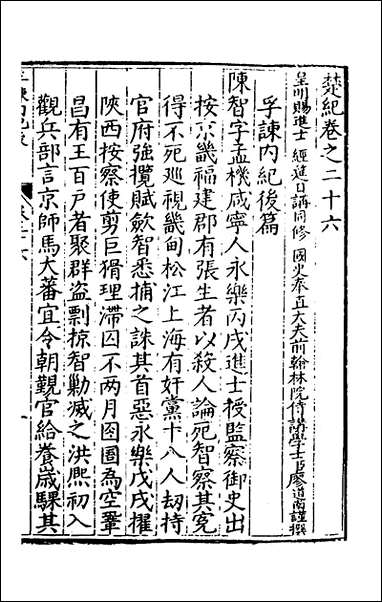 楚紀卷之二十六
呈明賜進士 經進日講同修 國史奉直大夫前翰林院侍講學士臣廖道南謹撰
孚諫内紀後篇
陳智字孟機咸寧人永樂丙戌進士授監察御史出
按京畿福建郡有張生者以殺人論死智察其冤
得不死巡視畿甸松江上海有奸黨十八人刼持
官府強攬賦歛智悉捕之誅其首惡永樂戊戌擢
陝西按察使剪巨猾理滯囚不两月囹圄為空鞏
昌有王百戶者聚群盗剽掠智勦滅之洪熙初入
觀兵部言京師馬大蕃宜令朝覲官給養歲騍其